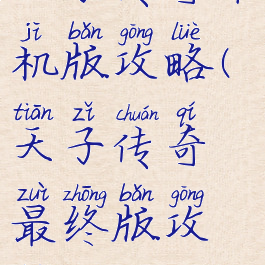 jī bǎn gōng lüè
机版攻略(
tiān zǐ chuán qí
天子传奇
zuì zhōng bǎn gōng
最终版攻